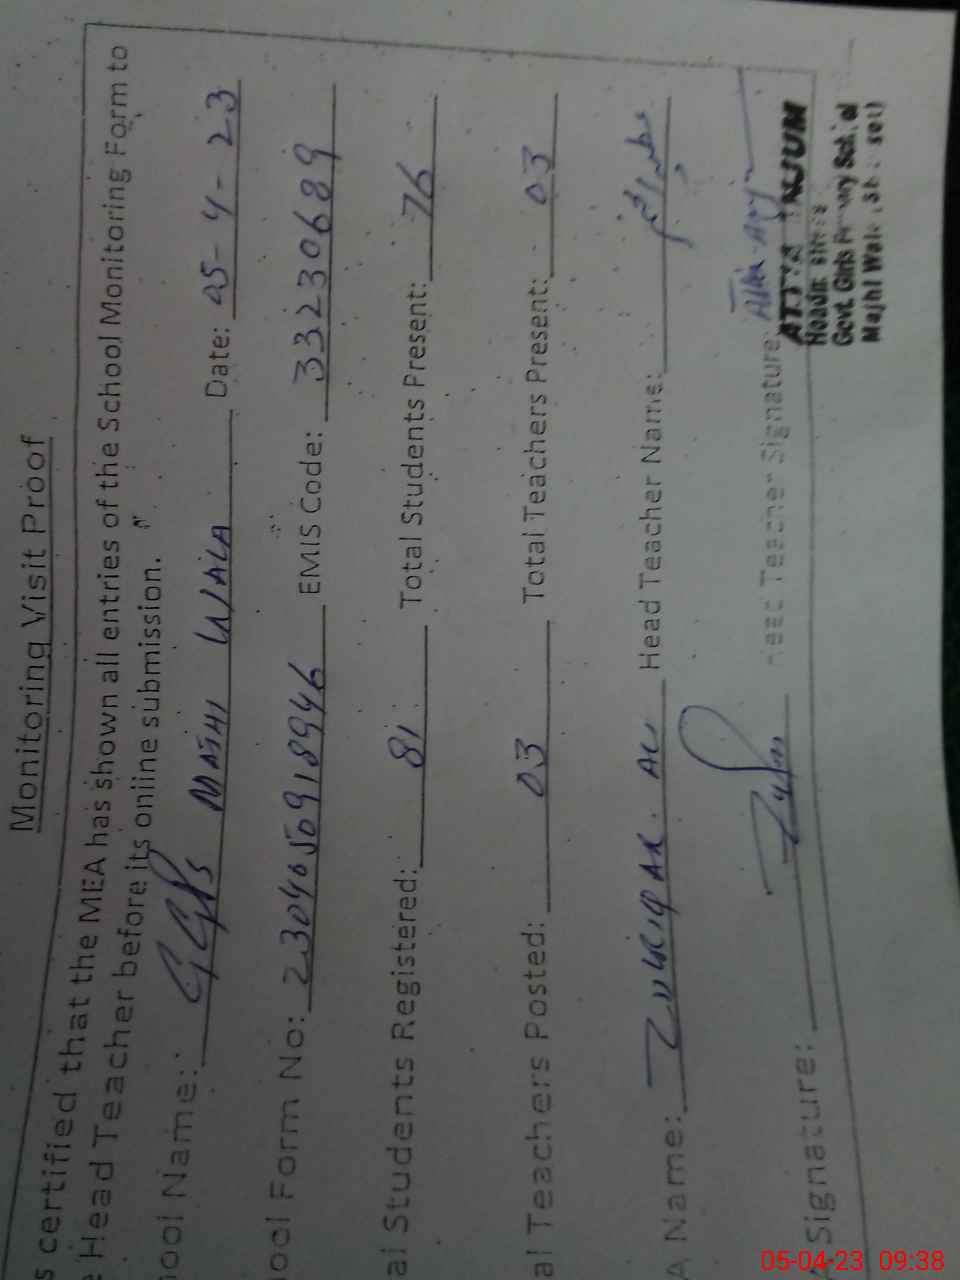 Monitoring Visit Proof
s certified that the MEA has shown all entries of the School Monitoring Form to
e Head Teacher before its online submission.
hool Name: GGPS MAJHI WALA Date: 05-4-23
hool Form No: 2304050918946 EMIS Code: 33230689
al Students Registered: 81 Total Students Present: 76
al Teachers Posted: 03 Total Teachers Present: 03
A Name: ZULFIQAR ALI Head Teacher Name:
A Signature: Head Teacher Signature:
ATTIA ANJUM
Headmistress
Govt. Girls Primary School
Majhi Wala
05-04-23 09:38